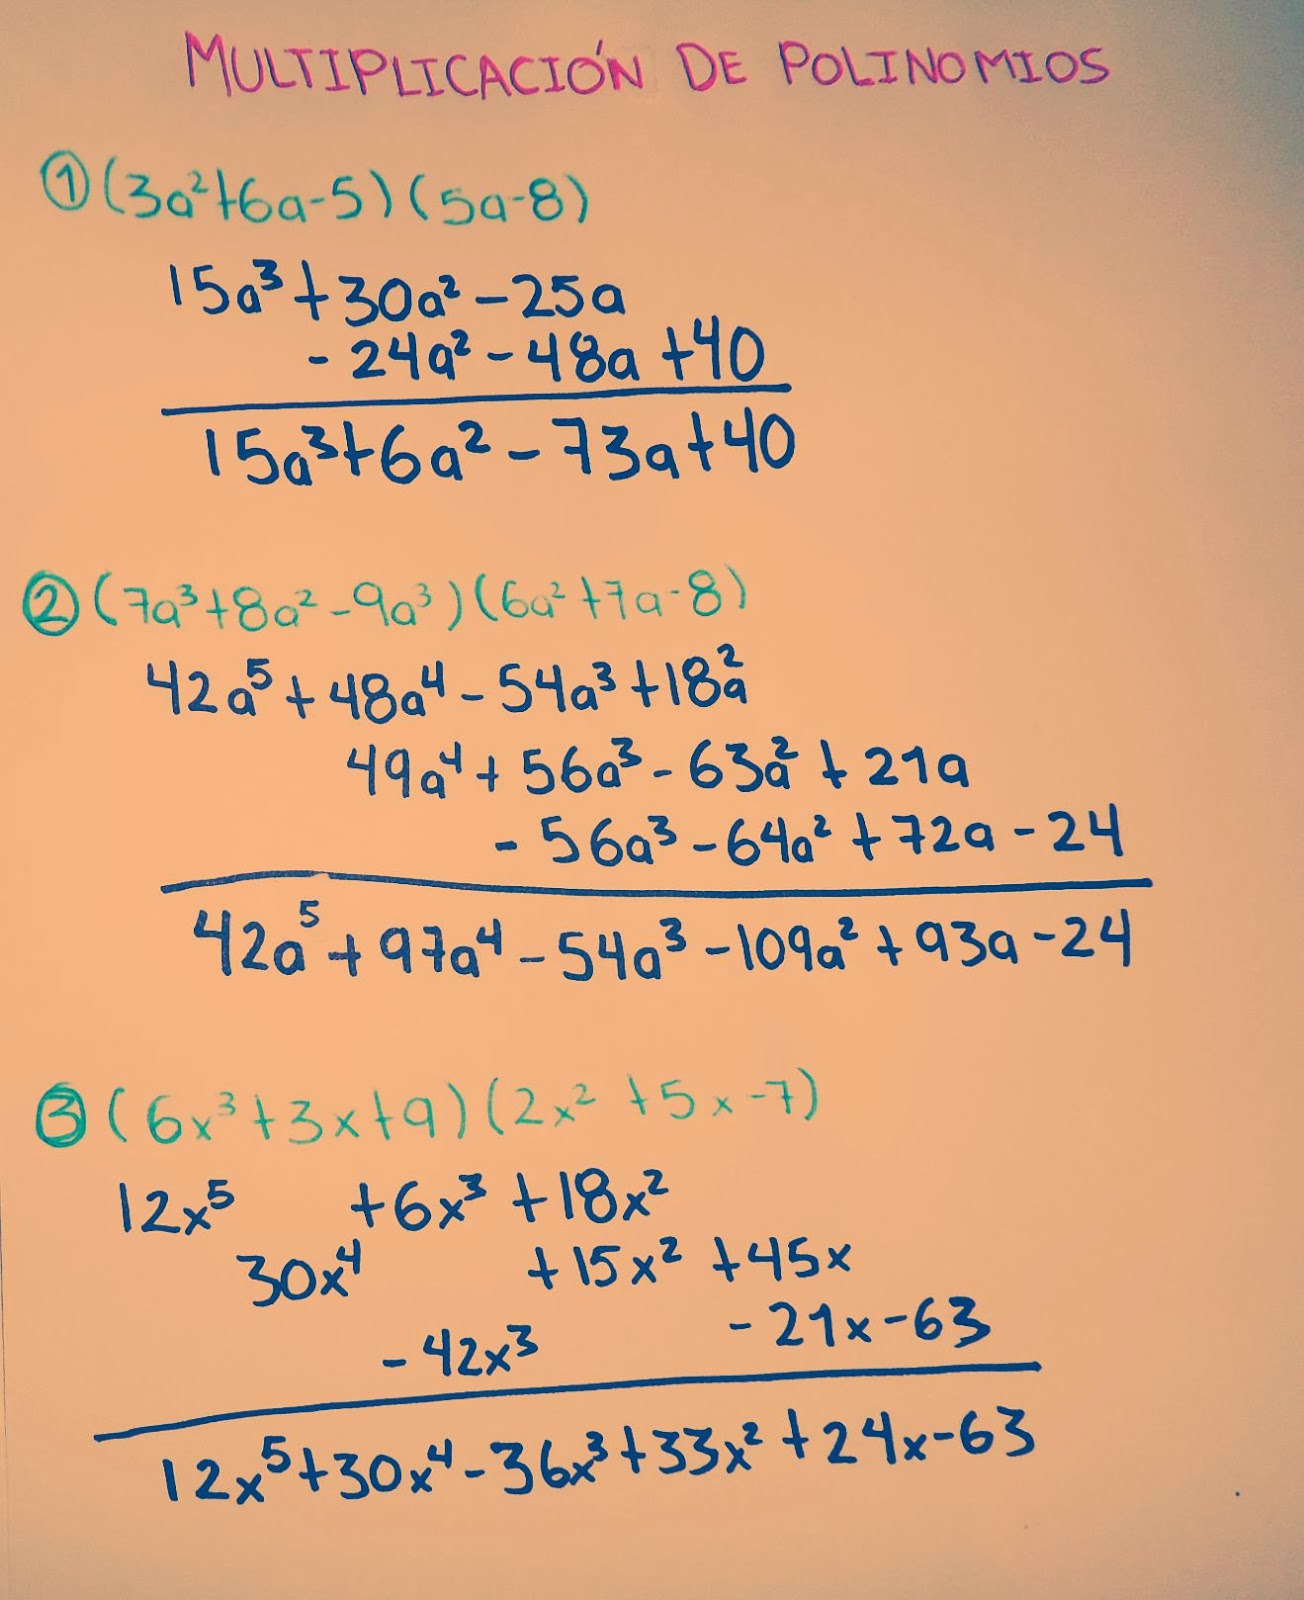 MULTIPLICACIÓN DE POLINOMIOS
① (3a²+6a-5)(5a-8)
15a³+30a²-25a
-24a²-48a+40
15a³+6a²-73a+40
② (7a³+8a²-9a³)(6a²+7a-8)
42a⁵+48a⁴-54a³+18a²
49a⁴+56a³-63a²+21a
-56a³-64a²+72a-24
42a⁵+97a⁴-54a³-109a²+93a-24
③ (6x³+3x+9)(2x²+5x-7)
12x⁵ +6x³+18x²
30x⁴ +15x²+45x
-42x³ -21x-63
12x⁵+30x⁴-36x³+33x²+24x-63